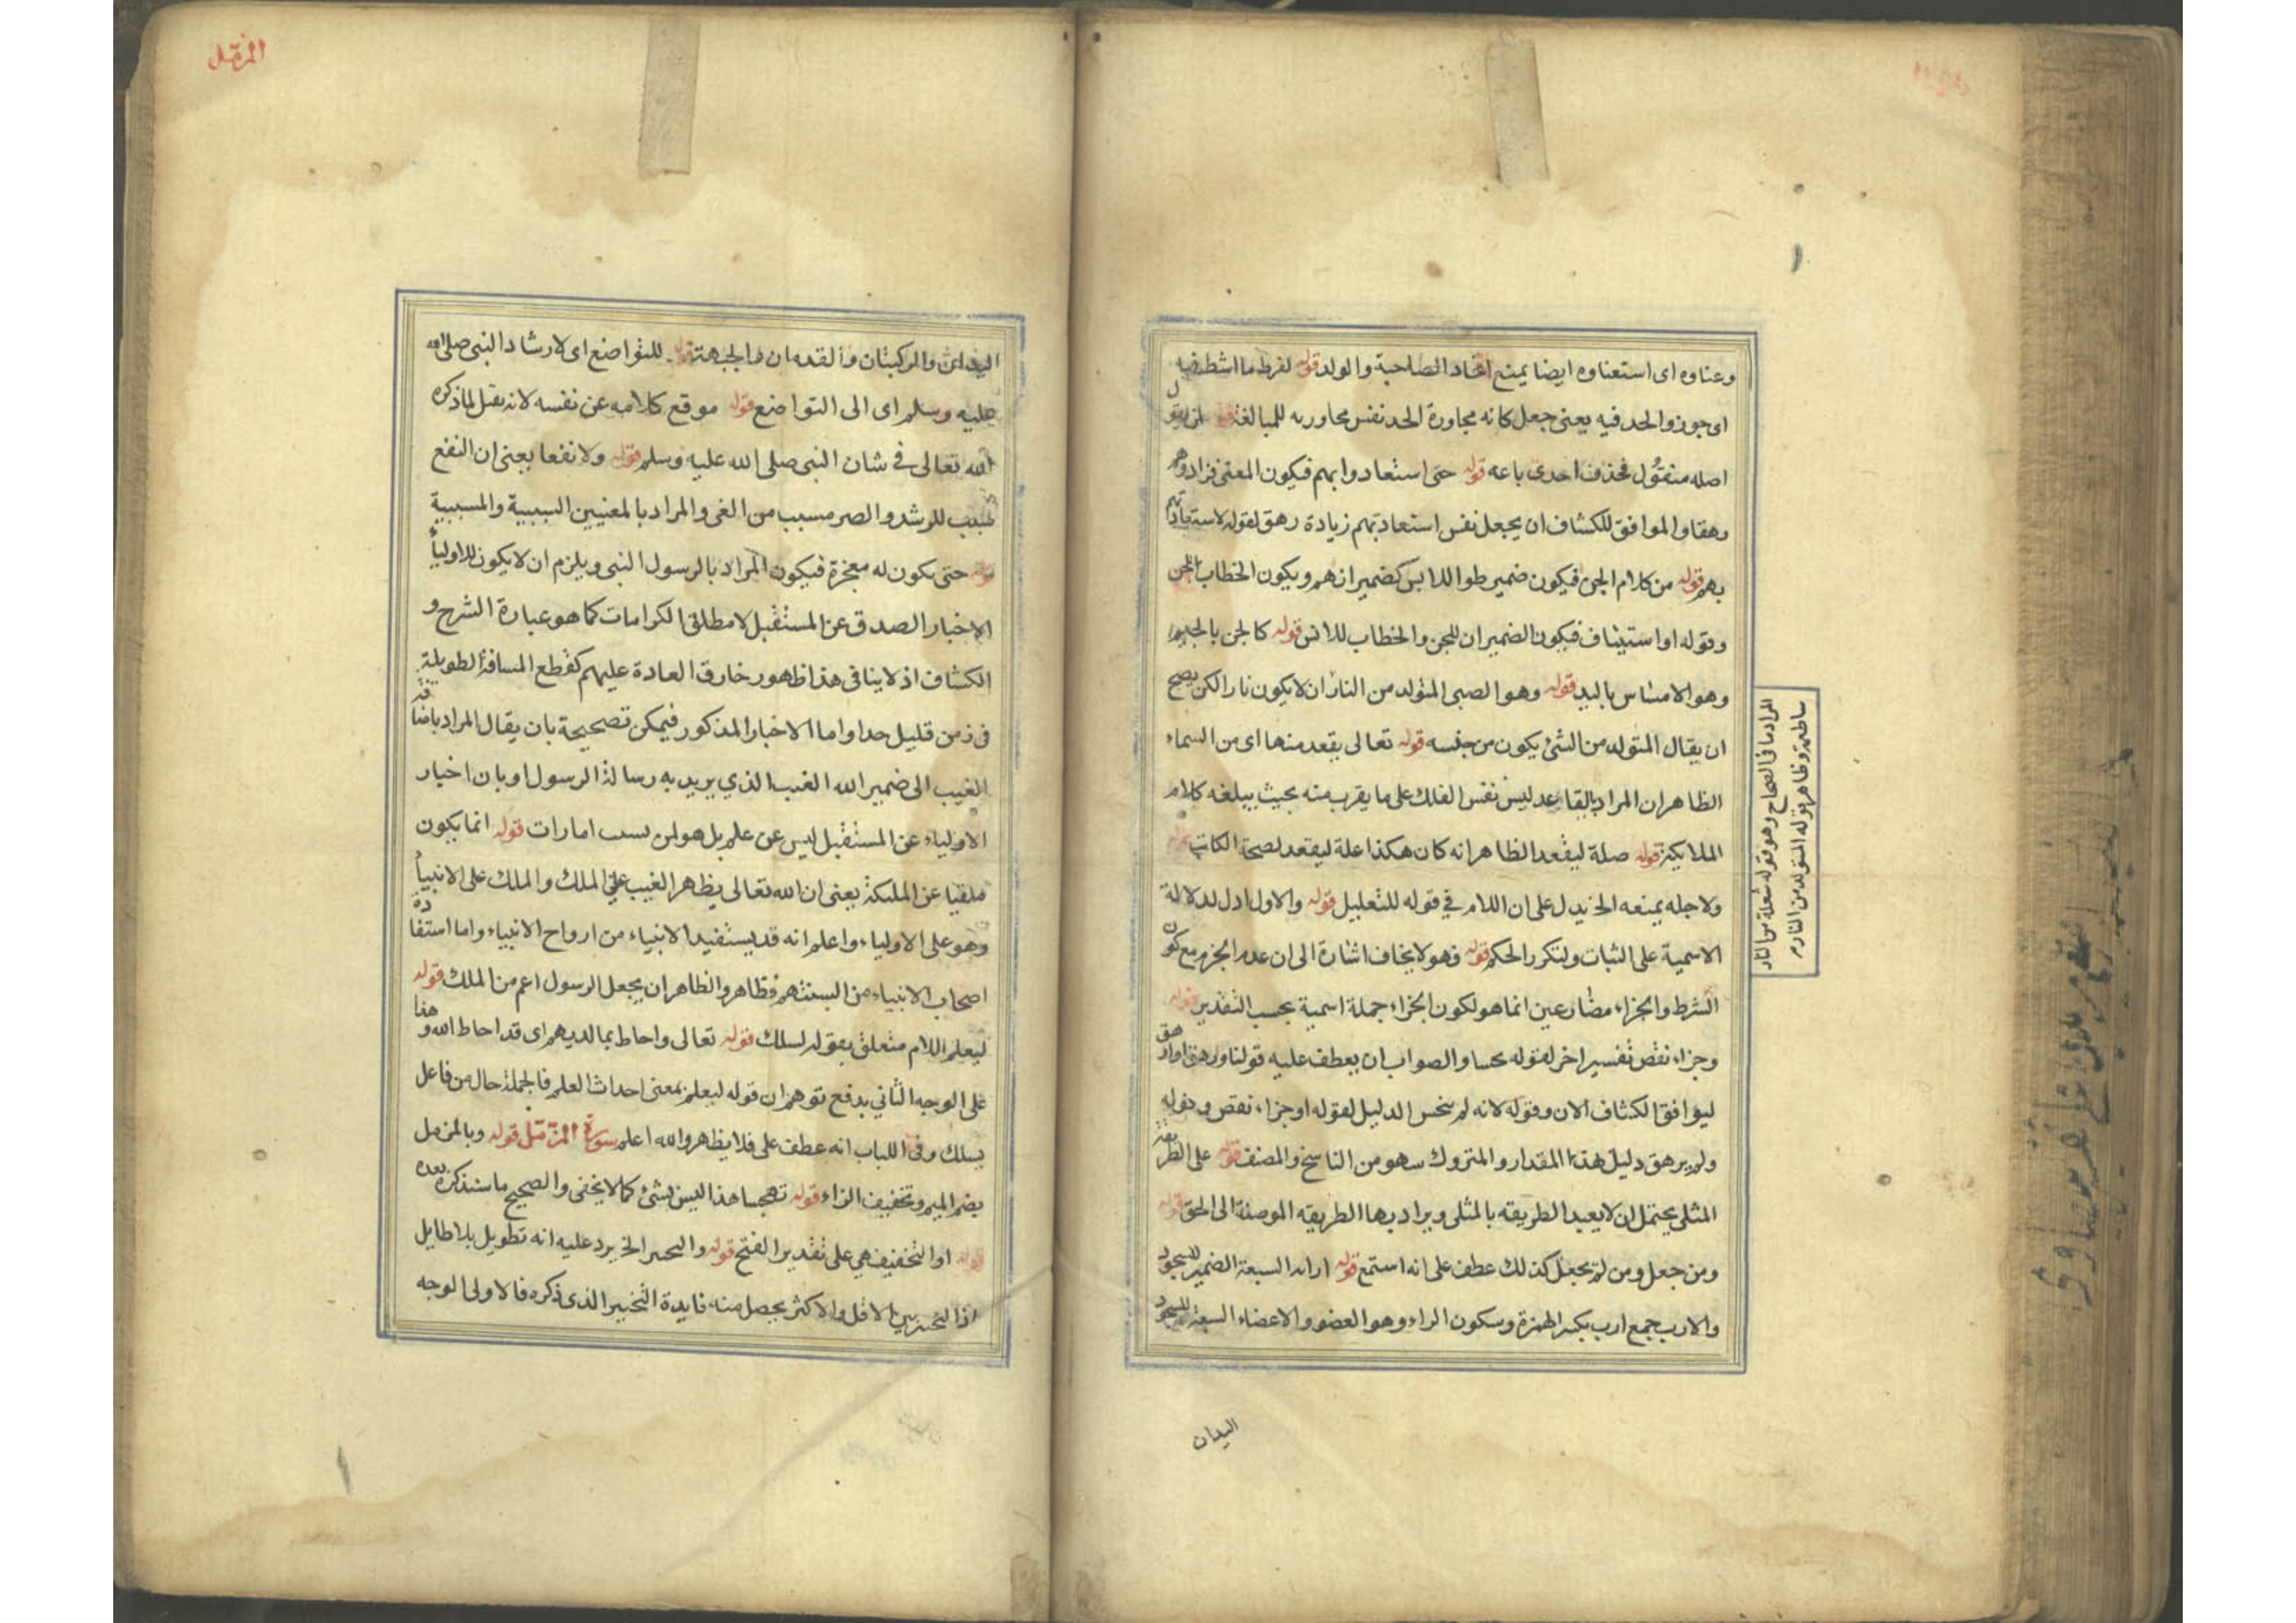 وغناوه اى استغناوه ايضا يمنع اتخاد الصاحبة والولد قوله لفرط ما اشط فيه
اى جوزوا الحد فيه يعنى جعل كانه مجاورة الحد نفس مجاوزته للمبالغة
اصله منتقول فحذف احدى باعه قوله حتى استعاذوا بهم فيكون المعنى فزادوهم
رهقا والموافق للكشاف ان يجعل نفس استعاذتهم زيادة رهق لقوله لاستعاذتهم
بهم قوله من كلام الجن فيكون ضمير ظنوا للانس كضمير انهم ويكون الخطاب للجن
وقوله او استيناف فيكون الضميران للجن والخطاب للانس قوله كالجن بالجنهم
وهو الامساس باليد قوله وهو الصبى المتولد من النار ان لا يكون نارا لكن يصح
ان يقال المتولد من الشئ يكون من جنسه قوله تعالى يقعد منها اى من السماء
الظاهر ان المراد بالقاعد ليس نفس الفلك على ما يقرب منه بحيث يبلغه كلام
الملايكة قوله صلة ليقعد الظاهر انه كان هكذا علة ليقعد لصحة الكاتب
ولاجله يمنعه الخ يدل على ان اللام فى قوله للتعليل قوله والاول ادل لدلالة
الاسمية على الثبات ولتكرر الحكم قوله فهو لا يخاف اشارة الى ان عدم الجزم مع كون
الشرط والجزاء مضارعين انما هو لكون الجزاء جملة اسمية بحسب التقدير قوله
وجزاء نقص تفسير اخر لقوله بخسا والصواب ان يعطف عليه قولنا ورهق او اد
ليوافق الكشاف الان وقوله لانه لم يبخس الدليل لقوله او جزاء نقص وقوله
ولم يرهق دليل هذا المقدار والمتروك سهو من الناسخ والمصنف قوله على الطريقة
المثلى يحتمل ان لا يعيد الطريقه بالمثلى ويراد بها الطريقه الموصلة الى الحق قوله
ومن جعل ومن لم يجعل كذلك عطف على انه استمع قوله ارابه السبعة الضمير للسجود
والارب جمع ارب بكسر الهمزة وسكون الراء وهو العضو والاعضاء السبعة للسجود
المراد ما فى الصحاح وهو قوله شعلة من النار
ساطعة وظاهر قوله المتولد من النار
اليدان
المزمل
اليدان والركبتان والقدمان والجبهة قوله للتواضع اى لارشاد النبى صلى الله
عليه وسلم اى الى التواضع قوله موقع كلامه عن نفسه لانه نقل لما ذكره
الله تعالى فى شان النبى صلى الله عليه وسلم قوله ولا نفعا يعنى ان النفع
مسبب للرشد والضر مسبب من الغى والمراد بالمعنيين السببية والمسببية
قوله حتى يكون له معجزة فيكون المراد بالرسول النبى ويلزم ان لا يكون للاولياء
الاخبار الصدق عن المستقبل لا مطلق الكرامات كما هو عبارة الشرح و
الكشاف اذ لا ينافى هذا ظهور خارق العادة عليهم كقطع المسافة الطويلة
فى زمن قليل جدا واما الاخبار المذكور فيمكن تصحيحة بان يقال المراد باضافة
الغيب الى ضمير الله الغيب الذي يريد به رسالة الرسول او بان اخبار
الاولياء عن المستقبل ليس عن علم بل هو لمن بسبب امارات قوله انما يكون
ملقيا عن الملئكة يعنى ان الله تعالى يظهر الغيب على الملك والملك على الانبياء
وهو على الاولياء واعلم انه قد يستفيد الانبياء من ارواح الانبياء واما استفادة
اصحاب الانبياء من السنتهم فظاهر والظاهر ان يجعل الرسول اعم من الملك قوله
ليعلم اللام متعلق بقوله لسلك قوله تعالى واحاط بما لديهم اى قد احاط الله وهذا
على الوجه الثاني يدفع توهم ان قوله ليعلم بمعنى احداث العلم فالجملة حال من فاعل
يسلك وفى اللباب انه عطف على فلا يظهر والله اعلم سورة المزمل قوله وبالمزمل
بضم الميم وتخفيف الزاء قوله تهجسا هذا ليس بشئ كما لا يخفى والصحيح ما سنذكره بعده
قوله او التخفيف هي على تقدير الفتح قوله والتخيير الخ يرد عليه انه تطويل بلا طايل
اذ التخيير بين الاقل والاكثر يحصل منه فايدة التخيير الذى ذكره فالاولى الوجه